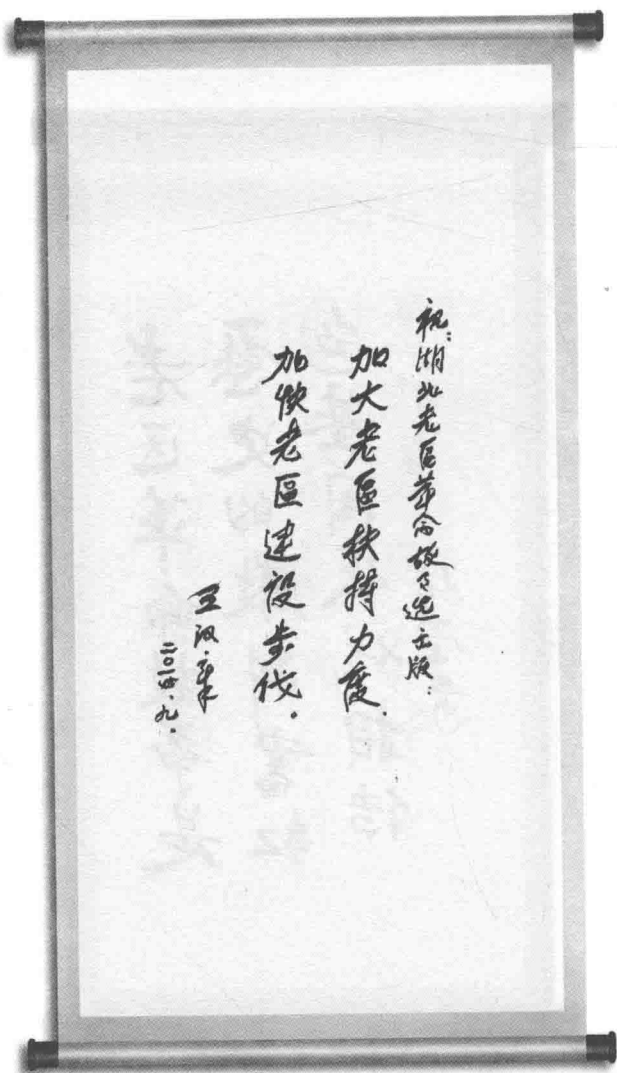 祝:湖北老區革命故事选出版:
加大老區扶持力度.
加快老區建设步伐.
王汉章
二〇一四.九.